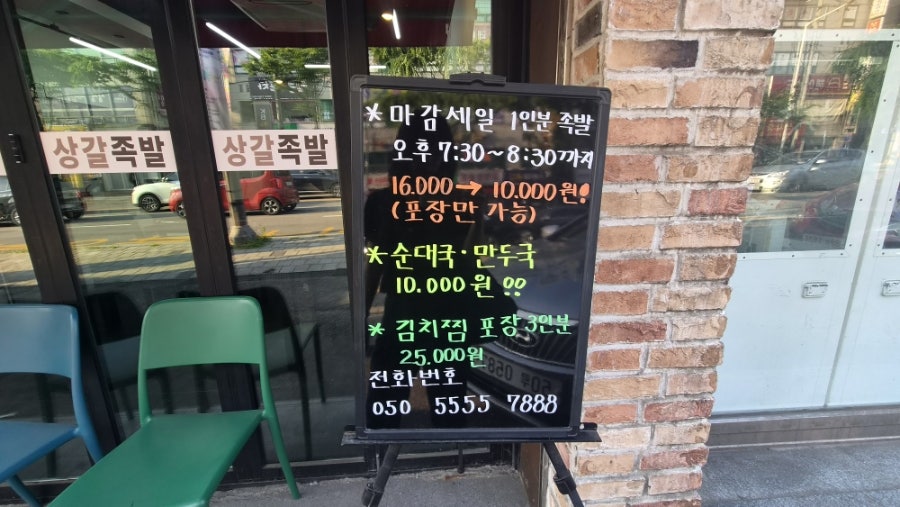 상갈족발
상갈족발
* 마감세일 1인분 족발
오후 7:30~8:30까지
16.000→10.000원!
(포장만 가능)
* 순대국·만두국
10.000원!!
* 김치찜 포장 3인분
25.000원
전화번호
050 5555 7888